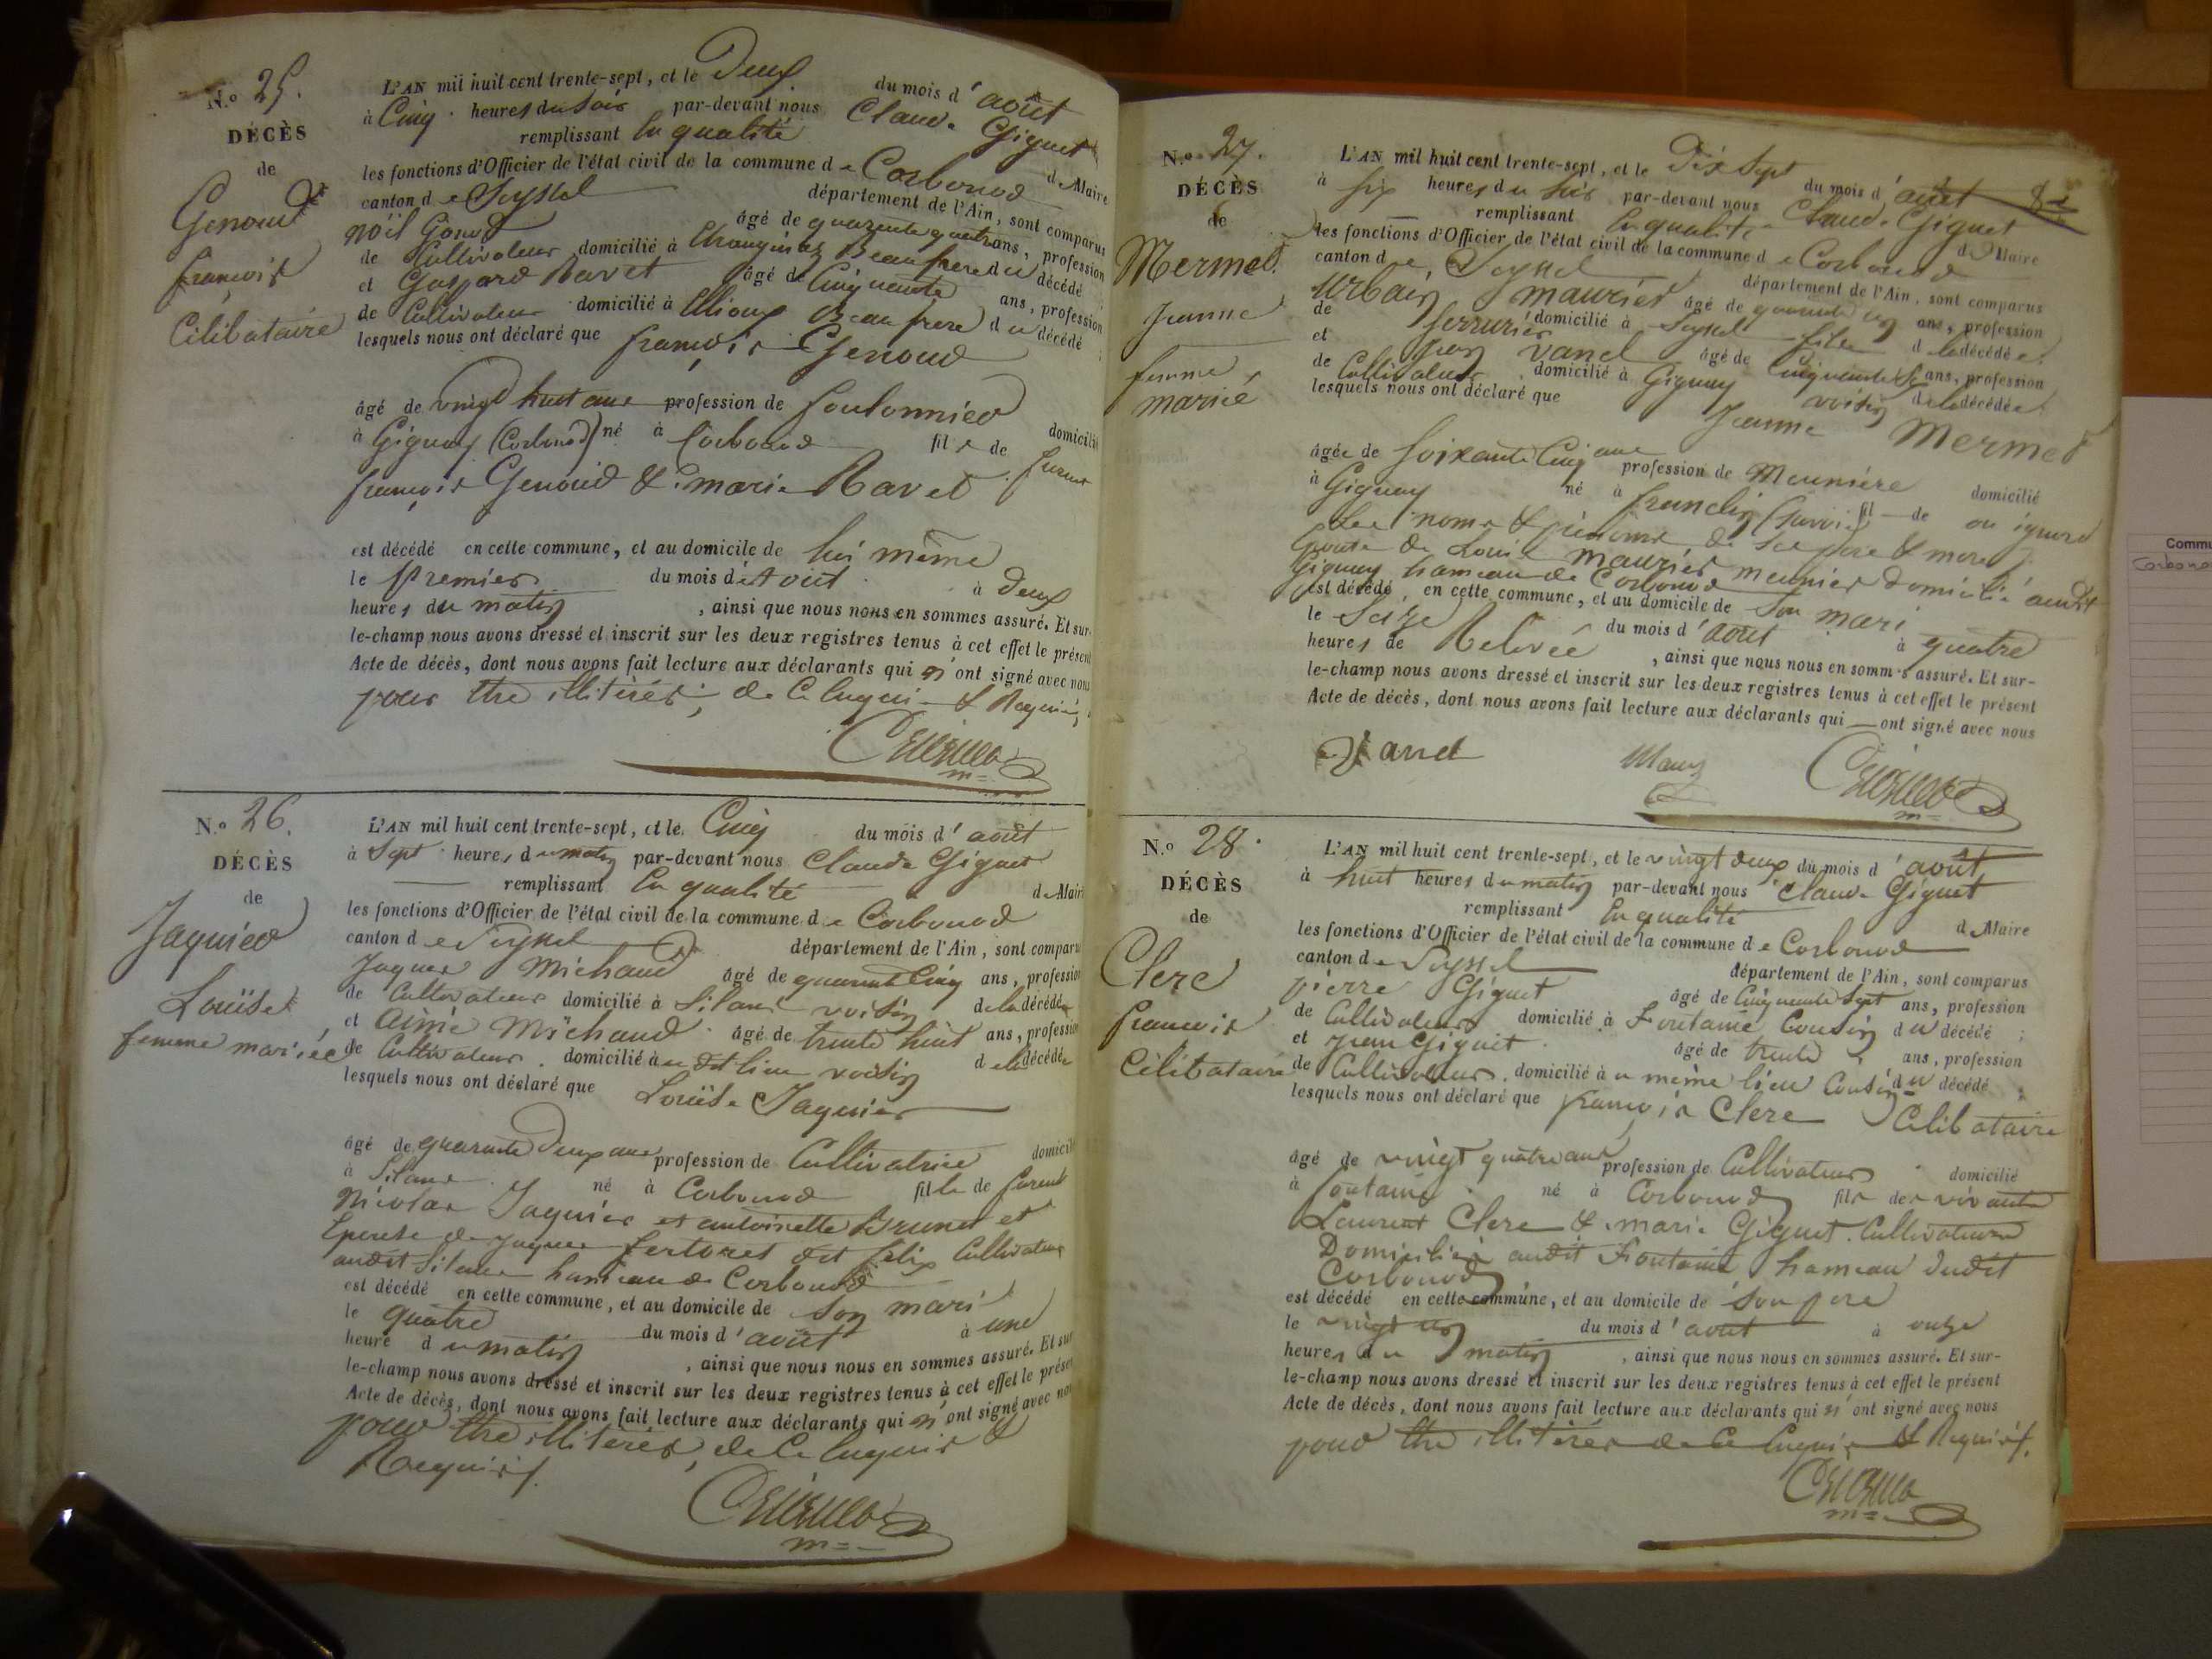 N.o 25.
DÉCÈS
de
Genoud
françois
Célibataire
L'AN mil huit cent trente-sept, et le Deux du mois d'août
à Cinq heures du soir par-devant nous Claude Giguet
remplissant En qualité de Maire
les fonctions d'Officier de l'état civil de la commune de Corbonod
canton de Seyssel département de l'Ain, sont comparus
âgé de quarante quatre ans, profession
de Cultivateur domicilié à Beaufrere du décédé ;
et Gaspard Ravet âgé de Cinquante ans, profession
de Cultivateur domicilié à Beau frere du décédé ;
lesquels nous ont déclaré que françois Genoud
âgé de vingt huit ans profession de domicilié
à Gignay (Corbonod) né à Corbonod fils de
françois Genoud & marie Ravet
est décédé en cette commune, et au domicile de lui même
le premier du mois d'Août à deux
heures du matin , ainsi que nous nous en sommes assuré. Et sur-
le-champ nous avons dressé et inscrit sur les deux registres tenus à cet effet le présent
Acte de décès, dont nous avons fait lecture aux déclarants qui n'ont signé avec nous
pour être illiterés, de ce enquis & Requis,
N.o 26.
DÉCÈS
de
Jaquier
Louise
femme mariée
L'AN mil huit cent trente-sept, et le Cinq du mois d'août
à Sept heures du matin par-devant nous Claude Giguet
remplissant En qualité de Maire
les fonctions d'Officier de l'état civil de la commune de Corbonod
canton de Seyssel département de l'Ain, sont comparus
Jaques Michaud âgé de quarante Cinq ans, profession
de Cultivateur domicilié à Silans voisin de la décédée
et Aimé Michaud âgé de trente huit ans, profession
de Cultivateur domicilié au dit lieu voisin de la décédée
lesquels nous ont déclaré que Louise Jaquier
âgé de quarante Deux ans profession de Cultivatrice domicilié
à Silans né à Corbonod fille de
Nicolas Jaquier et antoinette Brunet et
Epouse de Jaques fertoret dit felix Cultivateur
audit Silans hameau de Corbonod
est décédé en cette commune, et au domicile de Son mari
le quatre du mois d'août à une
heure du matin , ainsi que nous nous en sommes assuré. Et sur-
le-champ nous avons dressé et inscrit sur les deux registres tenus à cet effet le présent
Acte de décès, dont nous avons fait lecture aux déclarants qui n'ont signé avec nous
pour être illiterés, de Ce Enquis &
Requis.
N.o 27.
DÉCÈS
de
Mermet
Jeanne
femme
mariée
L'AN mil huit cent trente-sept, et le Dix Sept du mois d'août
à six heures du soir par-devant nous Claude Giguet
remplissant En qualité de Maire
les fonctions d'Officier de l'état civil de la commune de Corbonod
canton de Seyssel département de l'Ain, sont comparus
Urbain maurier âgé de quarante un ans, profession
de serrurier domicilié à Seyssel fils de la décédée
et jean vanel âgé de Cinquante ans, profession
de Cultivateur domicilié à Gignay voisin de la décédée
lesquels nous ont déclaré que Jeanne Mermet
âgée de soixante Cinq ans profession de Meunière domicilié
à Gignay né à franclin (savoie) fil de on ignore
Les noms & prénoms de Ses père & mere,
Epouse de Louis maurier meunier Domicilié audit
Gignay hameau de Corbonod
est décédé, en cette commune, et au domicile de Son mari
le Seize du mois d'août à quatre
heures de Relevée , ainsi que nous nous en sommes assuré. Et sur-
le-champ nous avons dressé et inscrit sur les deux registres tenus à cet effet le présent
Acte de décès, dont nous avons fait lecture aux déclarants qui ont signé avec nous
Vanel
N.o 28.
DÉCÈS
de
Clerc
françois
Célibataire
L'AN mil huit cent trente-sept, et le vingt deux du mois d'août
à huit heures du matin par-devant nous Claude Giguet
remplissant En qualité de Maire
les fonctions d'Officier de l'état civil de la commune de Corbonod
canton de Seyssel département de l'Ain, sont comparus
pierre Giguet âgé de Cinquante Sept ans, profession
de Cultivateur domicilié à Fontaine Cousin du décédé ;
et jean Giguet âgé de trente ans, profession
de Cultivateur domicilié au même lieu Cousin du décédé ;
lesquels nous ont déclaré que françois Clerc Célibataire
âgé de vingt quatre ans profession de Cultivateur domicilié
à fontaine né à Corbonod fils des vivants
Laurent Clerc & marie Giguet Cultivateurs
Domiciliés audit Fontaine hameau dudit
Corbonod
est décédé en cette commune, et au domicile de Son pere
le vingt un du mois d'août à onze
heures du matin , ainsi que nous nous en sommes assuré. Et sur-
le-champ nous avons dressé et inscrit sur les deux registres tenus à cet effet le présent
Acte de décès, dont nous avons fait lecture aux déclarants qui n'ont signé avec nous
pour être illiterés de Ce Enquis & Requis.